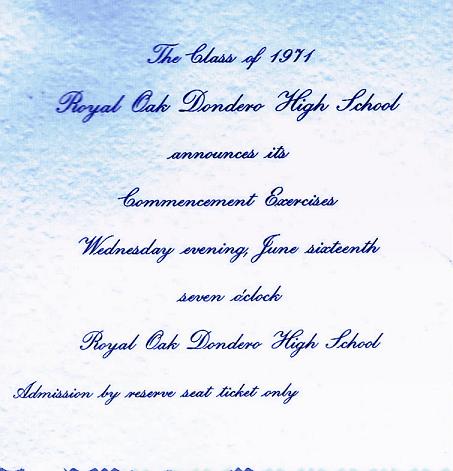 The Class of 1971
Royal Oak Dondero High School
announces its
Commencement Exercises
Wednesday evening, June sixteenth
seven o'clock
Royal Oak Dondero High School
Admission by reserve seat ticket only